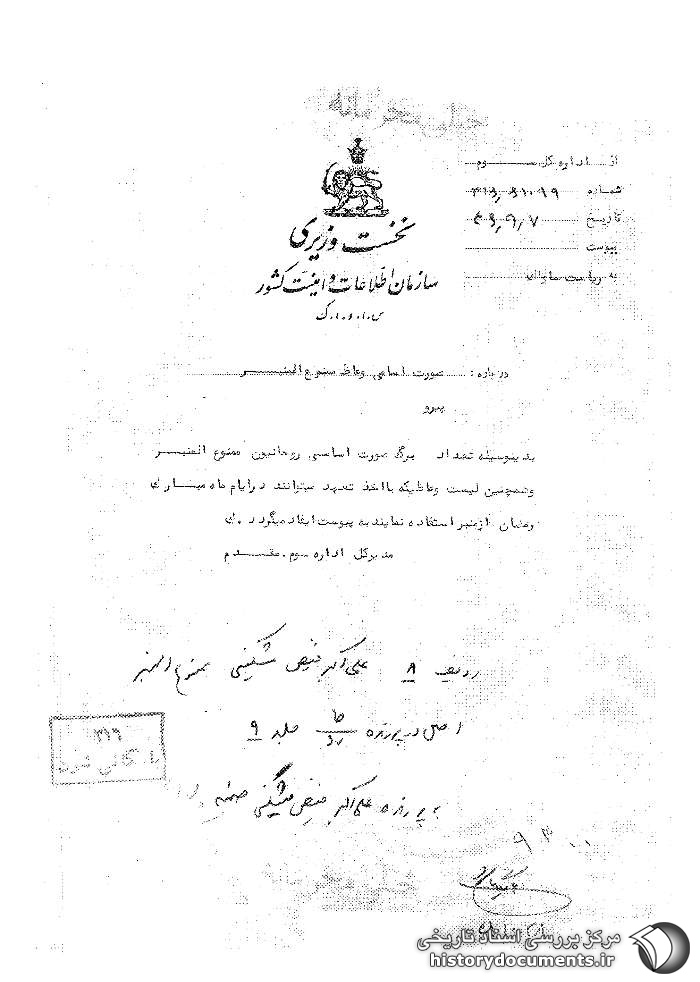 از اداره کل سوم
شماره ۳۱۶٫۶۱۰۹۹
تاریخ ۴۶٫۹٫۷
پیوست
به ریاست ساواک
نخست وزیری
سازمان اطلاعات و امنیت کشور
س.ا.و.ا.ک
درباره: صورت اسامی وعاظ ممنوع المنبر
پیرو
بدینوسیله تعداد برگ صورت اسامی روحانیون ممنوع المنبر
وهمچنین لیست وعاظیکه با اخذ تعهد میتوانند درایام ماه مبارک
رمضان ازمنبر استفاده نمایند به پیوست ایفاد میگردد. ک
مدیرکل اداره سوم. مقدم
ردیف ۸ علی اکبر فیض مشکینی ممنوع المنبر
اصل در پرونده جلد ۹
به پرونده علی اکبر فیض مشکینی ضمیمه
۳۱۶
بایگانی شود
مرکز بررسی اسناد تاریخی
historydocuments.ir